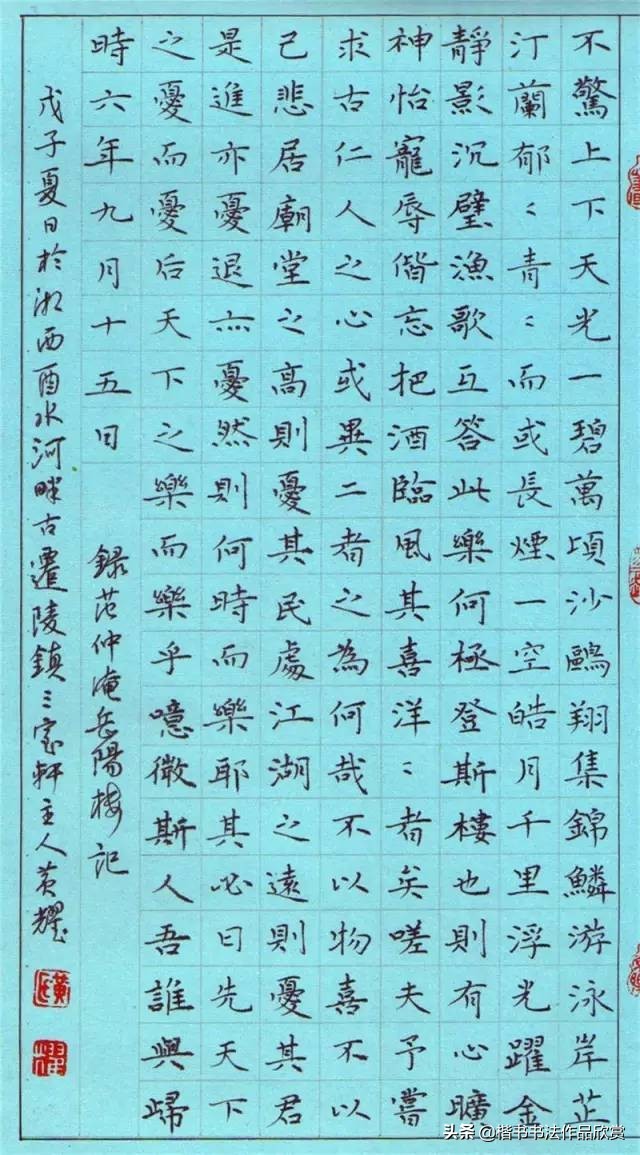 不驚上下天光一碧萬頃沙鷗翔集錦鱗游泳岸芷
汀蘭郁〻青〻而或長煙一空皓月千里浮光躍金
靜影沉璧漁歌互答此樂何極登斯樓也則有心曠
神怡寵辱偕忘把酒臨風其喜洋〻者矣嗟夫予嘗
求古仁人之心或異二者之為何哉不以物喜不以
己悲居廟堂之高則憂其民處江湖之遠則憂其君
是進亦憂退亦憂然則何時而樂耶其必曰先天下
之憂而憂后天下之樂而樂乎噫微斯人吾誰與歸
時六年九月十五日
錄范仲淹岳陽樓記
戊子夏日於湘西酉水河畔古遷陵鎮三軒主人黃耀
頭条@楷书书法作品欣赏